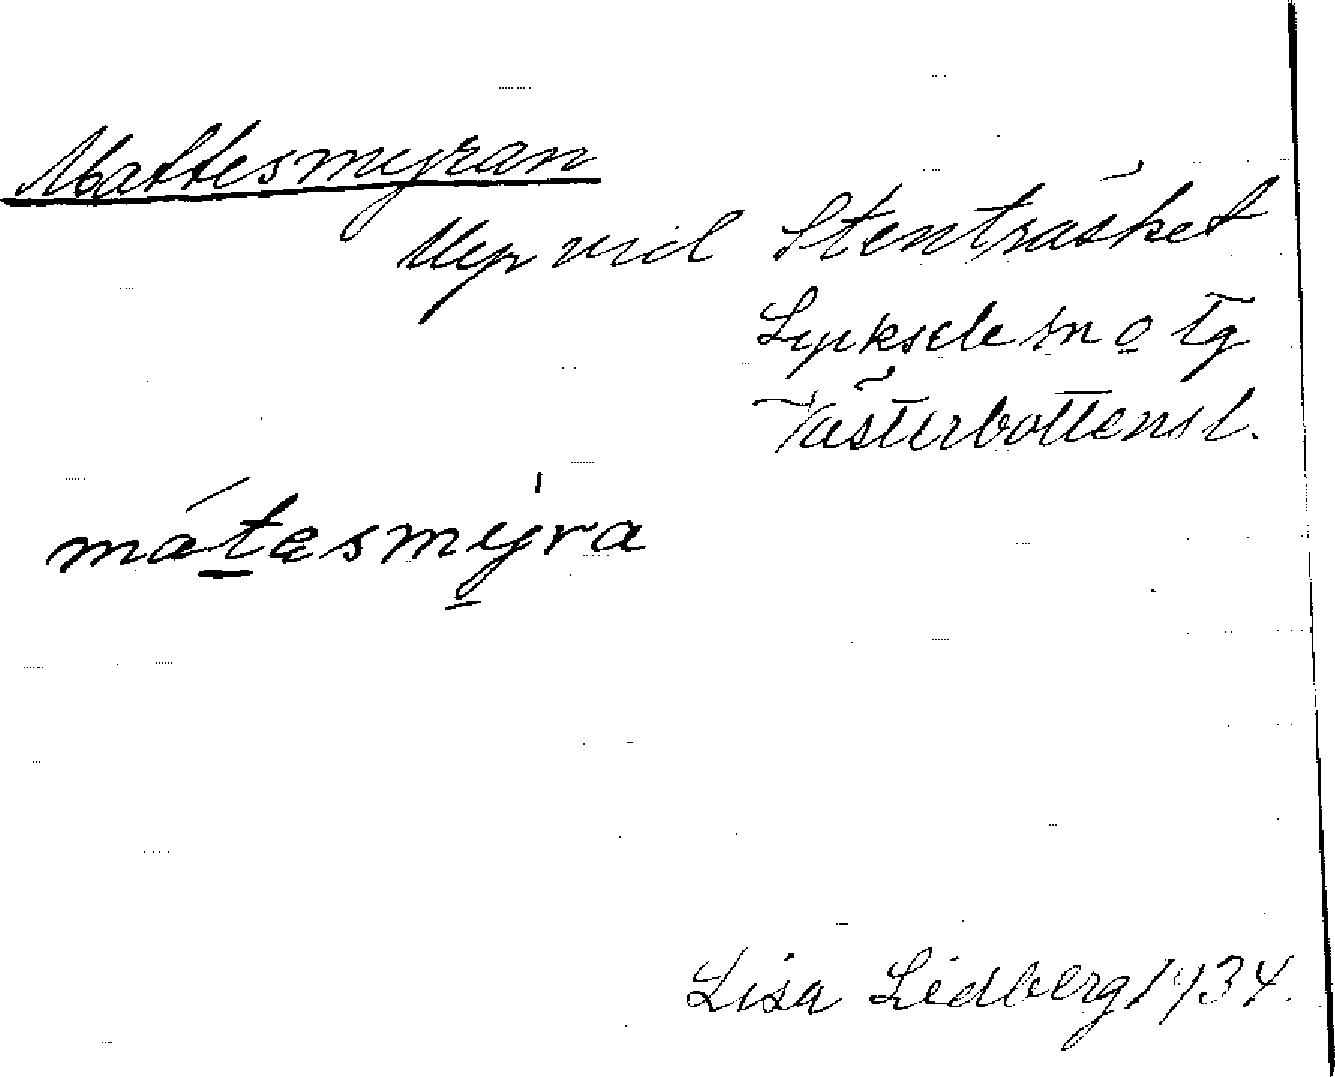 Mattesmyran
Myr vid Stenträsket
Lycksele sn o tg
Västerbottens l.
mátæsmy̱ra
Lisa Lidberg 1934.